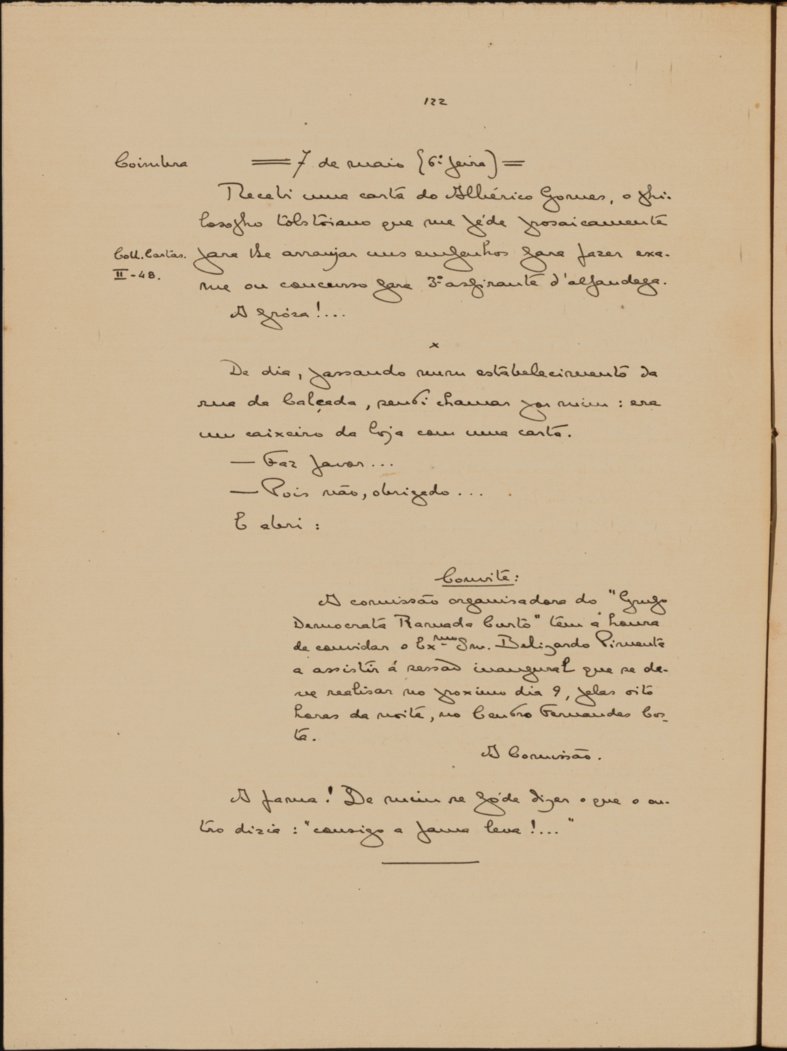 122
Coimbra = 7 de maio (6.ª feira) =
Recebi uma carta do Albérico Gomes, o phi-
losopho tolstoiano que me péde prosaicamente
Coll. Cartas. para lhe arranjar uns empenhos para fazer exa-
II-48. me ou concurso para 3.º aspirante d'alfandega.
A próza!...
x
De dia, passando num estabelecimento da
rua da Calçada, senti chamar por mim: era
um caixeiro da loja com uma carta.
— Faz favor...
— Pois não, obrigado...
E abri:
Convite:
A comissão organisadora do "Grupo
Democrata Ramada Curto" têm a honra
de convidar o Ex.mo Snr. Belizardo Pimenta
a assistir á sessão inaugural que se de-
ve realisar no proximo dia 9, pelas oito
horas da noite, no Centro Fernandes Cos-
ta.
A Comissão.
A fama! De mim se póde dizer o que o ou-
tro dizia: "consigo a fama leva!..."